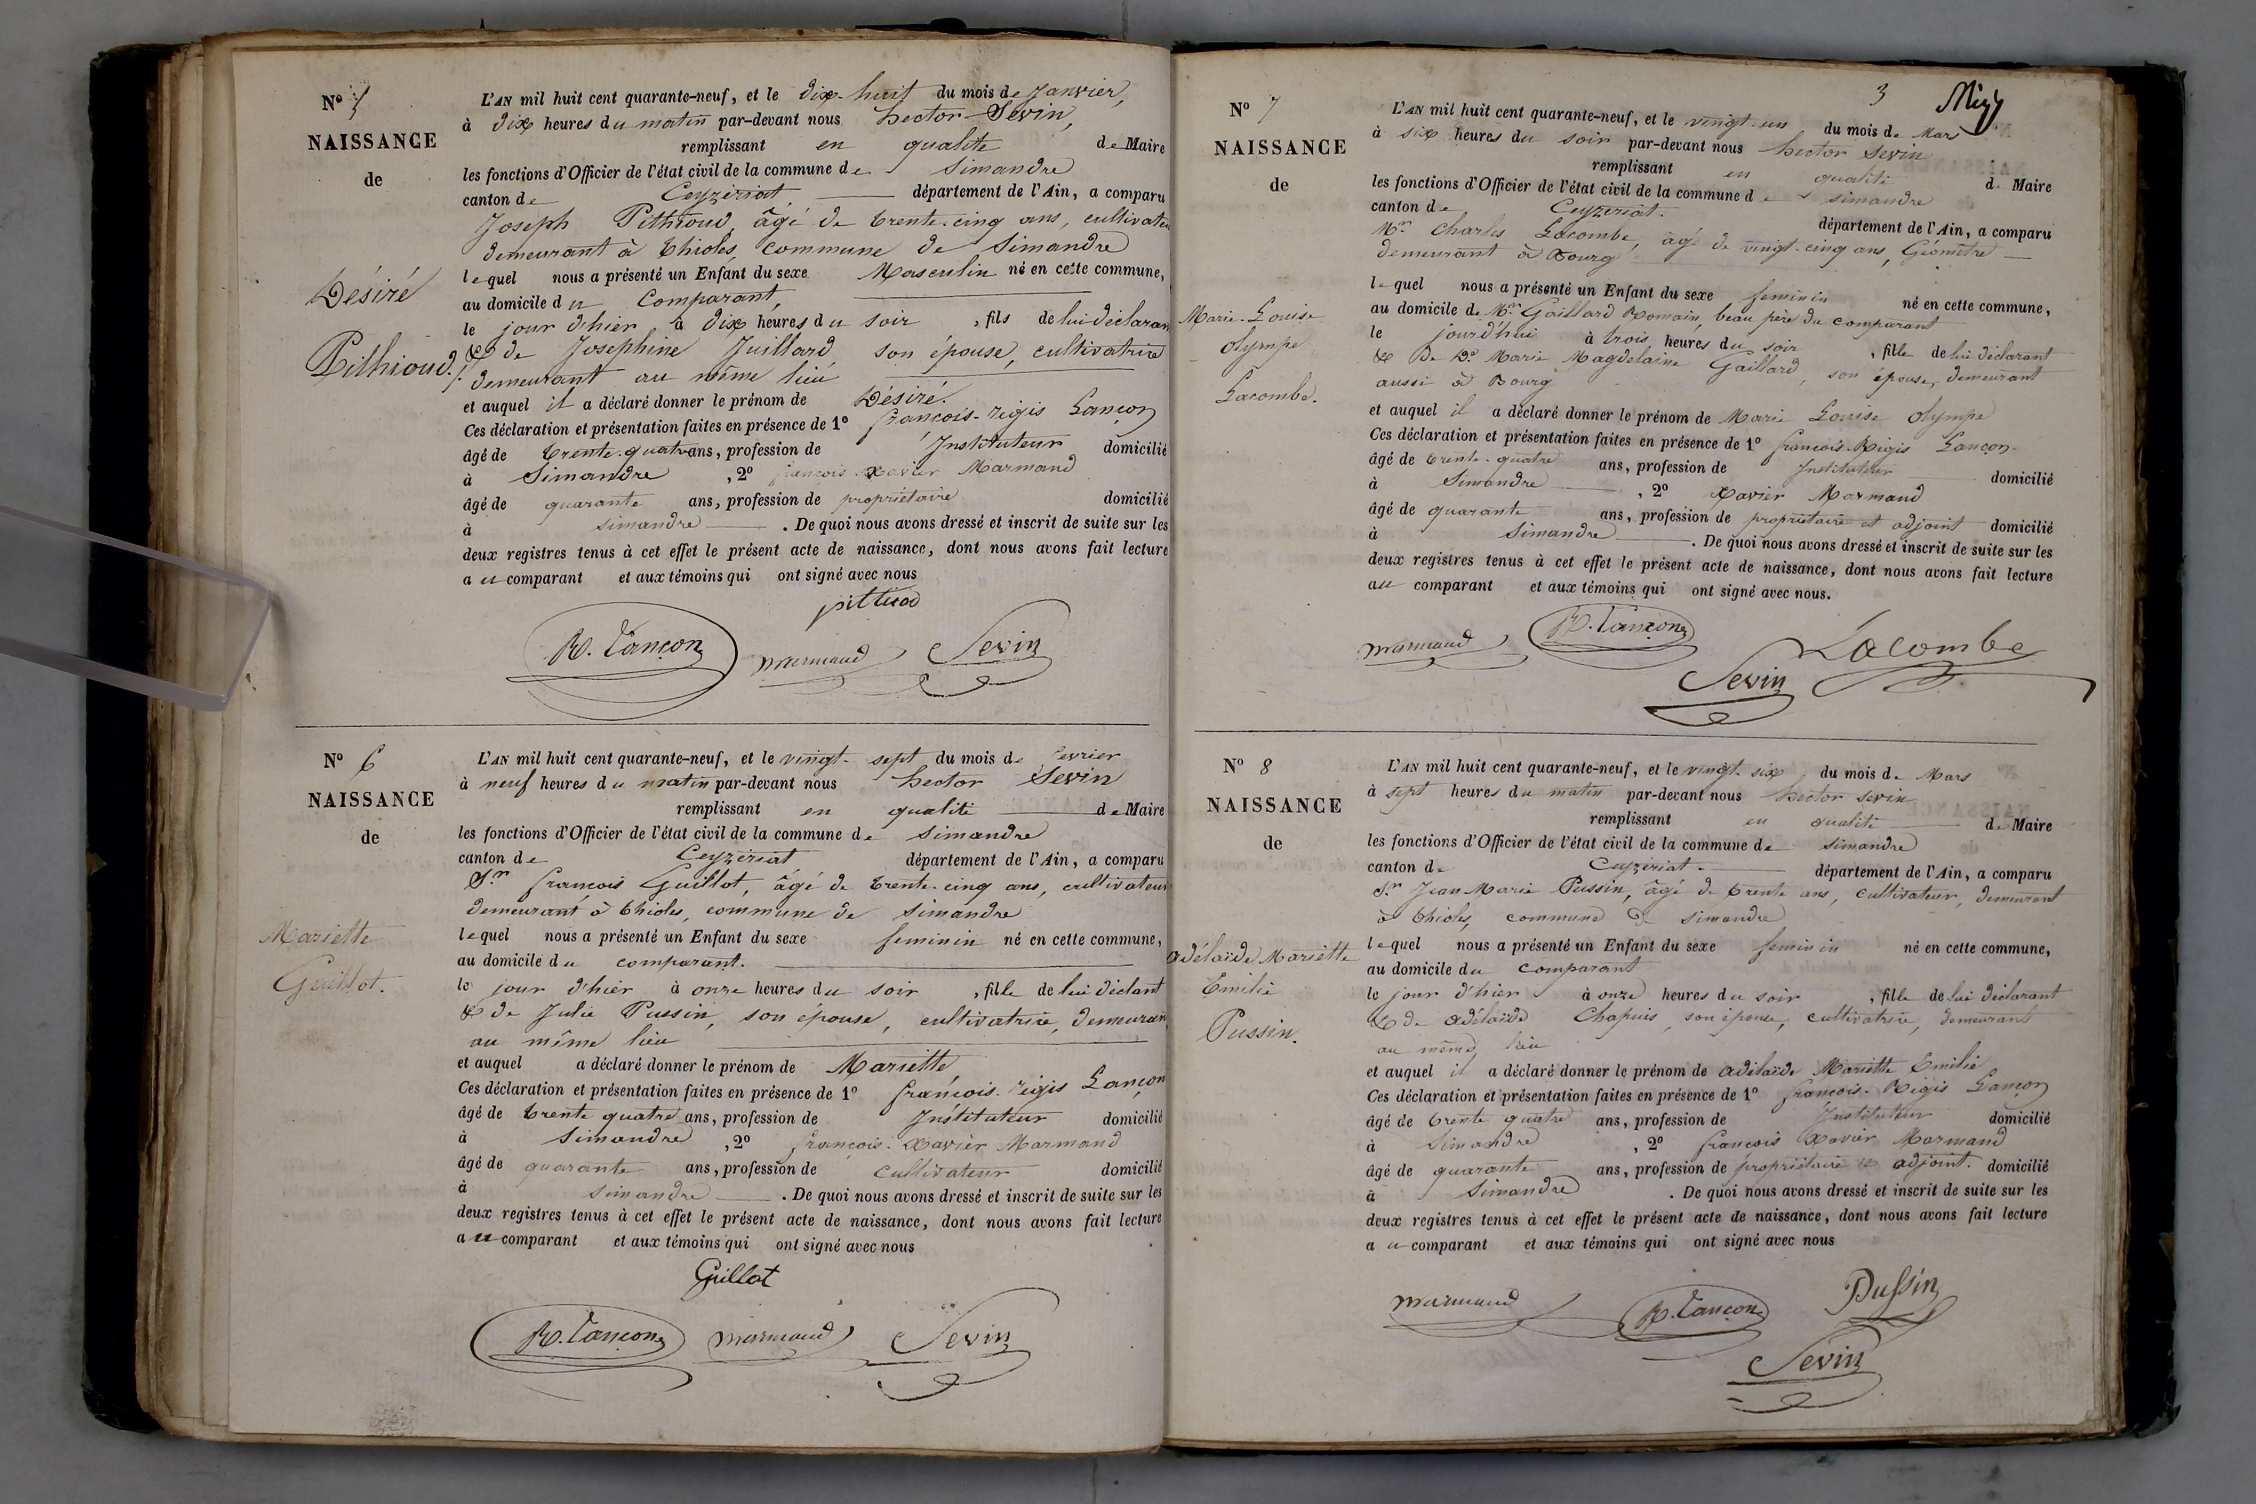 N° 5
NAISSANCE
de
Désiré
Pithioud.
L'AN mil huit cent quarante-neuf, et le dix-huit du mois de Janvier,
à dix heures du matin par-devant nous hector Sevin,
remplissant en qualité de Maire
les fonctions d'Officier de l'état civil de la commune de Simandre
canton de Ceyzériat, département de l'Ain, a comparu
Joseph Pithioud, âgé de trente-cinq ans, cultivateu
demeurant à Thioles, commune de Simandre
lequel nous a présenté un Enfant du sexe Masculin né en cette commune,
au domicile du Comparant,
le jour d'hier à dix heures du soir, fils de lui déclaran
& de Josephine Juillard, son épouse, cultivatrice
demeurant au même lieu
et auquel il a déclaré donner le prénom de Désiré.
Ces déclaration et présentation faites en présence de 1° françois-régis Lançon
âgé de trente-quatre ans, profession de Instituteur domicilié
à Simandre, 2° françois-Xavier Marmand
âgé de quarante ans, profession de propriétaire domicilié
à Simandre. De quoi nous avons dressé et inscrit de suite sur les
deux registres tenus à cet effet le présent acte de naissance, dont nous avons fait lecture
au comparant et aux témoins qui ont signé avec nous
pithiod
R. Lançon marmand Sevin
N° 6
NAISSANCE
de
Mariette
Guillot.
L'AN mil huit cent quarante-neuf, et le vingt-sept du mois de fevrier
à neuf heures du matin par-devant nous hector Sevin
remplissant en qualité de Maire
les fonctions d'Officier de l'état civil de la commune de Simandre
canton de Ceyzériat département de l'Ain, a comparu
Sr. françois Guillot, âgé de trente-cinq ans, cultivateur
demeurant à Thioles, commune de Simandre
lequel nous a présenté un Enfant du sexe feminin né en cette commune,
au domicile du comparant.
le jour d'hier à onze heures du soir, fille de lui déclant
& de Julie Pussin, son épouse, cultivatrice, demeuran
au même lieu
et auquel a déclaré donner le prénom de Mariette
Ces déclaration et présentation faites en présence de 1° françois-régis Lançon
âgé de trente quatre ans, profession de Instituteur domicilié
à Simandre, 2° françois-Xavier Marmand
âgé de quarante ans, profession de cultivateur domicilié
à Simandre. De quoi nous avons dressé et inscrit de suite sur les
deux registres tenus à cet effet le présent acte de naissance, dont nous avons fait lecture
au comparant et aux témoins qui ont signé avec nous
Guillot
R. Lançon marmand Sevin
3
N° 7
NAISSANCE
de
Marie-Louise
Olympe
Lacombe.
L'AN mil huit cent quarante-neuf, et le vingt-un du mois de Mars
à six heures du soir par-devant nous hector Sevin
remplissant en qualité de Maire
les fonctions d'Officier de l'état civil de la commune de Simandre
canton de Ceyzériat. département de l'Ain, a comparu
Mr. Charles Lacombe, âgé de vingt-cinq ans, Géomètre
demeurant à Bourg
lequel nous a présenté un Enfant du sexe feminin né en cette commune,
au domicile de Mr. Gaillard Romain, beau père du comparant
le jourd'hui à trois heures du soir, fille de lui déclarant
& de De. Marie Magdelaine Gaillard, son épouse, demeurant
aussi à Bourg
et auquel il a déclaré donner le prénom de Marie Louise Olympe
Ces déclaration et présentation faites en présence de 1° françois-Régis Lançon.
âgé de trente-quatre ans, profession de Instituteur domicilié
à Simandre, 2° Xavier Marmand
âgé de quarante ans, profession de propriétaire et adjoint domicilié
à Simandre. De quoi nous avons dressé et inscrit de suite sur les
deux registres tenus à cet effet le présent acte de naissance, dont nous avons fait lecture
au comparant et aux témoins qui ont signé avec nous.
marmand R. Lançon Lacombe
Sevin
N° 8
NAISSANCE
de
adélaïde Mariette
Emilie
Pussin.
L'AN mil huit cent quarante-neuf, et le vingt-six du mois de Mars
à sept heures du matin par-devant nous hector sevin
remplissant en qualité de Maire
les fonctions d'Officier de l'état civil de la commune de Simandre
canton de Ceyzériat. département de l'Ain, a comparu
Sr. Jean Marie Pussin, âgé de trente ans, cultivateur, demeurant
à Thioles, commune de Simandre
lequel nous a présenté un Enfant du sexe feminin né en cette commune,
au domicile du comparant
le jour d'hier à onze heures du soir, fille de lui déclarant
& de adélaïde Chapuis, son épouse, cultivatrice, demeurant
au même lieu
et auquel il a déclaré donner le prénom de adélaïde Mariette Emilie
Ces déclaration et présentation faites en présence de 1° françois-Régis Lançon
âgé de trente quatre ans, profession de Instituteur domicilié
à Simandre, 2° françois Xavier Marmand
âgé de quarante ans, profession de propriétaire & adjoint. domicilié
à Simandre. De quoi nous avons dressé et inscrit de suite sur les
deux registres tenus à cet effet le présent acte de naissance, dont nous avons fait lecture
au comparant et aux témoins qui ont signé avec nous
marmand R. Lançon Pussin
Sevin